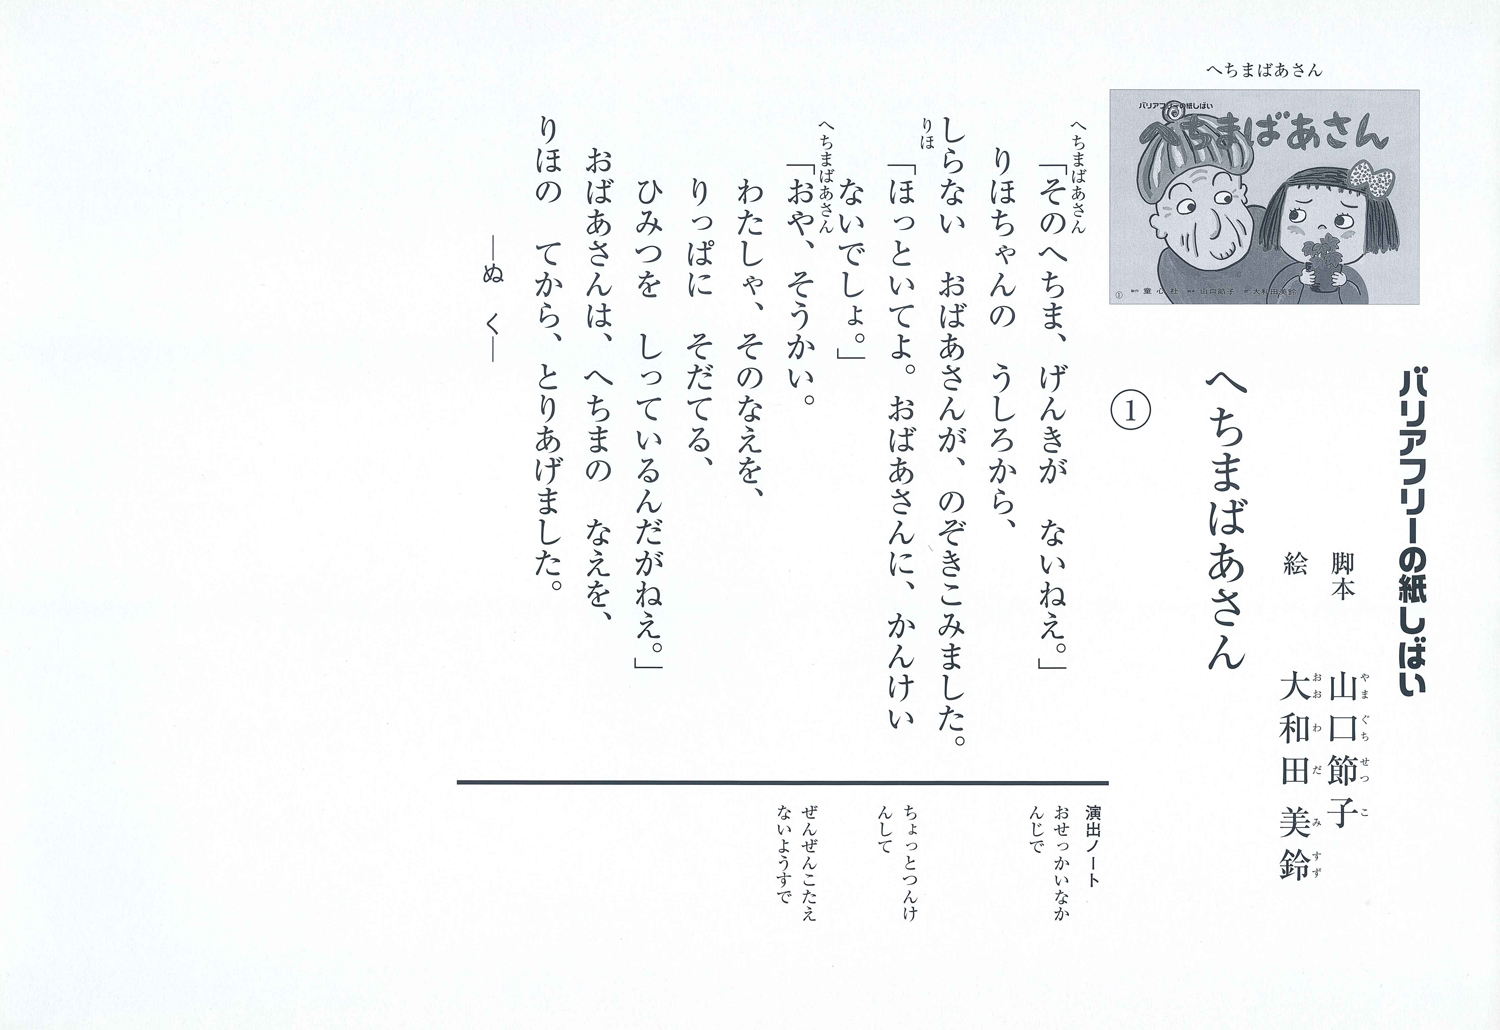 バリアフリーの紙しばい
脚本　山口節子
やまぐちせつこ
絵　大和田美鈴
おおわだみすず
へちまばあさん
へちまばあさん
バリアフリーの紙しばい
へちまばあさん
①
童心社　山口節子　大和田美鈴
①
へちまばあさん
「そのへちま、げんきが　ないねえ。」
りほちゃんの　うしろから、
しらない　おばあさんが、のぞきこみました。
りほ
「ほっといてよ。おばあさんに、かんけい
ないでしょ。」
へちまばあさん
「おや、そうかい。
わたしゃ、そのなえを、
りっぱに　そだてる、
ひみつを　しっているんだがねえ。」
おばあさんは、へちまの　なえを、
りほの　てから、とりあげました。
―ぬ　く―
演出ノート
おせっかいなか
んじで
ちょっとつんけ
んして
ぜんぜんこたえ
ないようすで